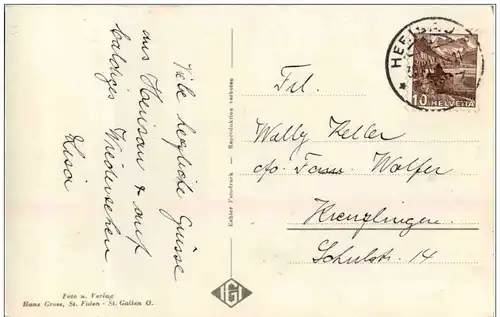 Viele herzliche Grüsse
aus Herisau & auf
baldiges Wiedersehen
Elsa
Foto u. Verlag
Hans Gross, St. Fiden - St. Gallen O.
Echter Fotodruck — Reproduktion verboten
HERISAU
10 HELVETIA
Frl.
Wally Keller
c/o Wolfer
Kreuzlingen
Schulstr. 14